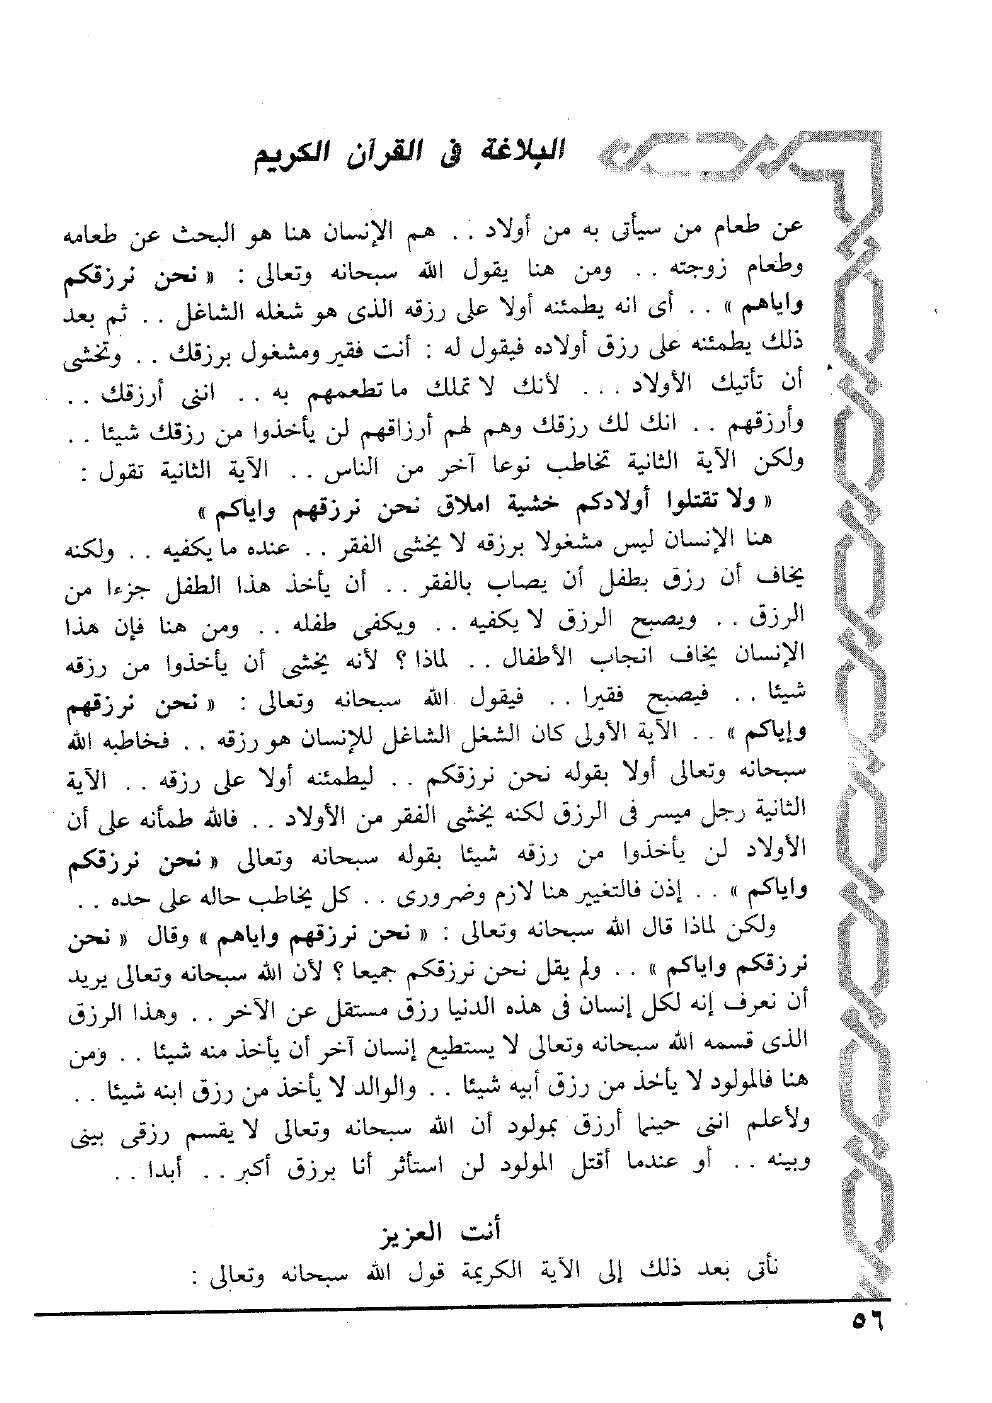 البلاغة فى القرآن الكريم
عن طعام من سيأتى به من أولاد .. هم الإنسان هنا هو البحث عن طعامه
وطعام زوجته .. ومن هنا يقول الله سبحانه وتعالى : « نحن نرزقكم
واياهم » .. أى انه يطمئنه أولا على رزقه الذى هو شغله الشاغل .. ثم بعد
ذلك يطمئنه على رزق أولاده فيقول له : أنت فقير ومشغول برزقك .. وتخشى
أن تأتيك الأولاد ... لأنك لا تملك ماتطعمهم به .. اننى أرزقك ..
وأرزقهم .. انك لك رزقك وهم لهم أرزاقهم لن يأخذوا من رزقك شيئا ..
ولكن الآية الثانية تخاطب نوعا آخر من الناس .. الآية الثانية تقول :
« ولا تقتلوا أولادكم خشية املاق نحن نرزقهم واياكم »
هنا الإنسان ليس مشغولا برزقه لا يخشى الفقر .. عنده مايكفيه .. ولكنه
يخاف أن رزق بطفل أن يصاب بالفقر .. أن يأخذ هذا الطفل جزءا من
الرزق .. ويصبح الرزق لا يكفيه .. ويكفى طفله .. ومن هنا فإن هذا
الإنسان يخاف انجاب الأطفال .. لماذا ؟ لأنه يخشى أن يأخذوا من رزقه
شيئا .. فيصبح فقيرا .. فيقول الله سبحانه وتعالى : « نحن نرزقهم
وإياكم » .. الآية الأولى كان الشغل الشاغل للإنسان هو رزقه .. فخاطبه الله
سبحانه وتعالى أولا بقوله نحن نرزقكم .. ليطمئنه أولا على رزقه .. الآية
الثانية رجل ميسر فى الرزق لكنه يخشى الفقر من الأولاد .. فالله طمأنه على أن
الأولاد لن يأخذوا من رزقه شيئا بقوله سبحانه وتعالى « نحن نرزقكم
واياكم » .. إذن فالتغيير هنا لازم وضرورى .. كل يخاطب حاله على حده ..
ولكن لماذا قال الله سبحانه وتعالى : « نحن نرزقهم واياهم » وقال « نحن
نرزقكم واياكم » .. ولم يقل نحن نرزقكم جميعا ؟ لأن الله سبحانه وتعالى يريد
أن نعرف إنه لكل إنسان فى هذه الدنيا رزق مستقل عن الآخر .. وهذا الرزق
الذى قسمه الله سبحانه وتعالى لا يستطيع إنسان آخر أن يأخذ منه شيئا .. ومن
هنا فالمولود لا يأخذ من رزق أبيه شيئا .. والوالد لا يأخذ من رزق ابنه شيئا ..
ولأعلم اننى حينما أرزق بمولود أن الله سبحانه وتعالى لا يقسم رزقى بينى
وبينه .. أو عندما أقتل المولود لن استأثر أنا برزق أكبر .. أبدا ..
أنت العزيز
نأتى بعد ذلك إلى الآية الكريمة قول الله سبحانه وتعالى :
٥٦